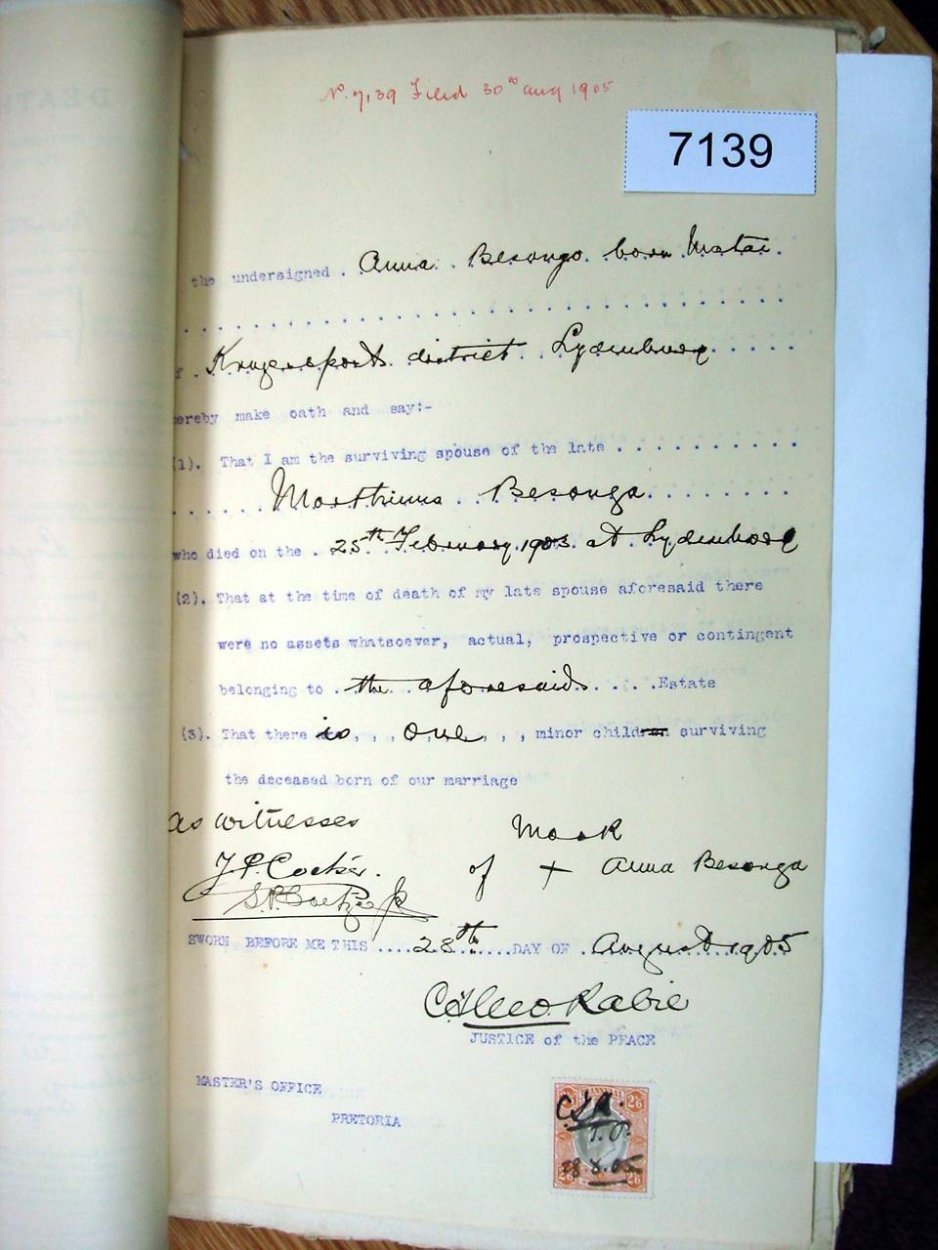 N. 7139 Filed 30th Aug 1905
7139
the undersigned . Anna . Besongo . born Matai .
Krugerspost district . Lydenburg
hereby make oath and say:-
(1). That I am the surviving spouse of the late
Marthinus . Besonga
who died on the . 25th February 1903 at Lydenburg
(2). That at the time of death of my late spouse aforesaid there
were no assets whatsoever, actual, prospective or contingent
belonging to . the . aforesaid . Estate
(3). That there is , , , one , , , minor child surviving
the deceased born of our marriage
as witnesses Mark
of + Anna Besonga
SWORN BEFORE ME THIS .... 28th .... DAY OF . August 1905
Rabie
JUSTICE of the PEACE
MASTER'S OFFICE
PRETORIA
2/6 2/6
J.P.
28.8.05
2/6 2/6